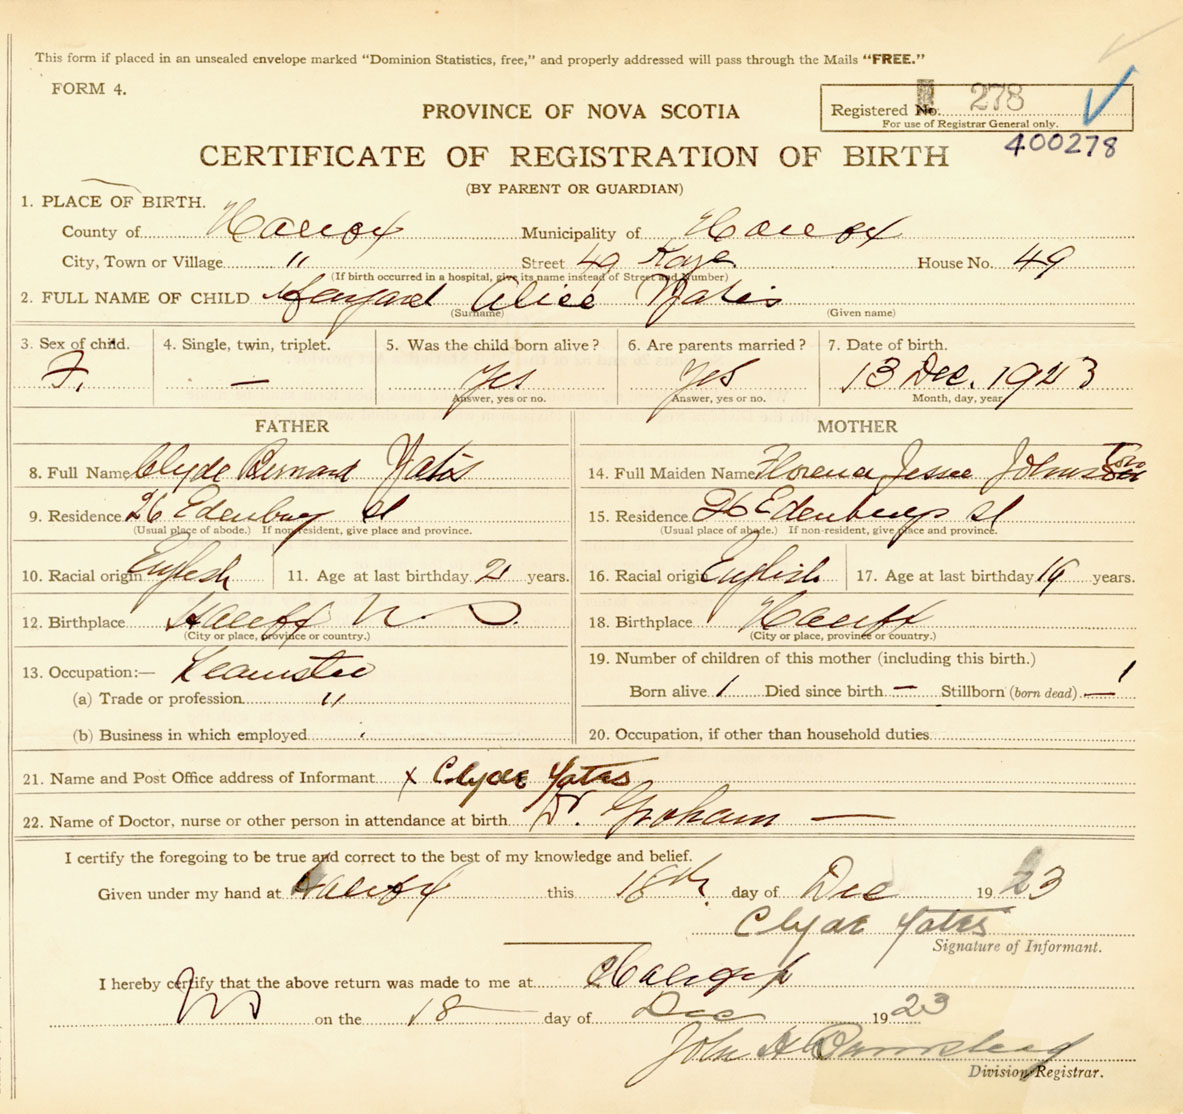 This form if placed in an unsealed envelope marked "Dominion Statistics, free," and properly addressed will pass through the Mails "FREE."
FORM 4.
PROVINCE OF NOVA SCOTIA
Registered No. 278
For use of Registrar General only.
400278
CERTIFICATE OF REGISTRATION OF BIRTH
(BY PARENT OR GUARDIAN)
1. PLACE OF BIRTH.
County of Halifax Municipality of Halifax
City, Town or Village " Street 49 Kaye House No. 49
(If birth occurred in a hospital, give its name instead of Street and Number)
2. FULL NAME OF CHILD Alice Yates
(Surname) (Given name)
3. Sex of child. 4. Single, twin, triplet. 5. Was the child born alive? 6. Are parents married? 7. Date of birth.
F. — Yes Yes 13 Dec. 1923
Answer, yes or no. Answer, yes or no. Month, day, year
FATHER MOTHER
8. Full Name Clyde Bernard Yates 14. Full Maiden Name Florence Jessie Johnston
9. Residence 26 Edenburg St 15. Residence 26 Edenburg St
(Usual place of abode.) If non-resident, give place and province. (Usual place of abode.) If non-resident, give place and province.
10. Racial origin English 11. Age at last birthday 21 years. 16. Racial origin English 17. Age at last birthday 19 years.
12. Birthplace Halifax N.S. 18. Birthplace Halifax
(City or place, province or country.) (City or place, province or country.)
13. Occupation:— Teamster 19. Number of children of this mother (including this birth.) 1
(a) Trade or profession " Born alive 1 Died since birth — Stillborn (born dead) —
(b) Business in which employed 20. Occupation, if other than household duties
21. Name and Post Office address of Informant x Clyde Yates
22. Name of Doctor, nurse or other person in attendance at birth Dr. Graham —
I certify the foregoing to be true and correct to the best of my knowledge and belief.
Given under my hand at Halifax this 18th day of Dec 1923
Clyde Yates
Signature of Informant.
I hereby certify that the above return was made to me at Halifax
NS on the 18 day of Dec 1923
John H Barnstead
Division Registrar.